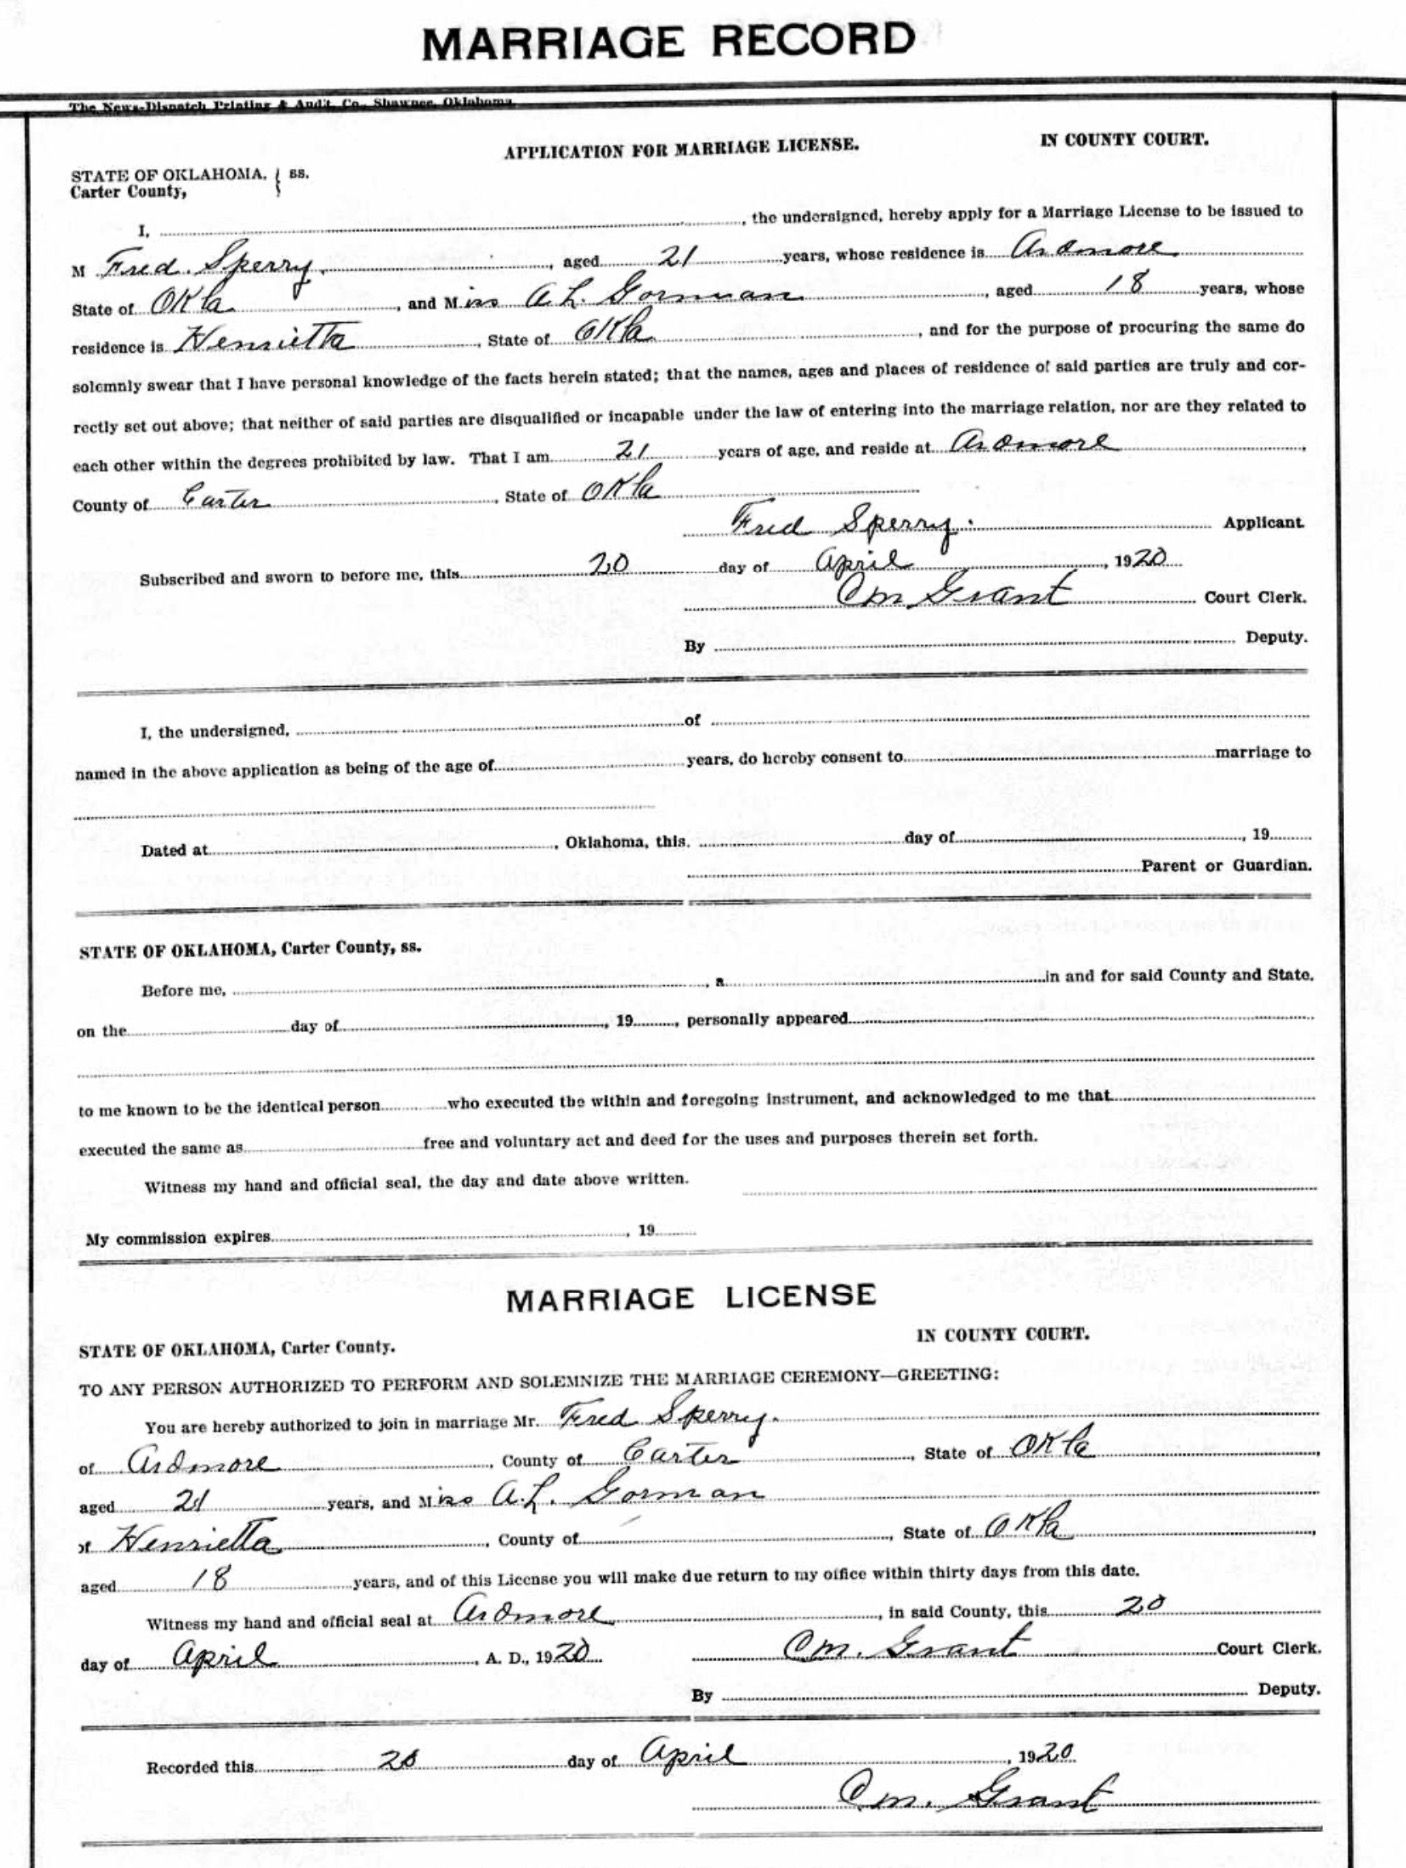 MARRIAGE RECORD
The News-Dispatch Printing & Audit. Co., Shawnee, Oklahoma
APPLICATION FOR MARRIAGE LICENSE. IN COUNTY COURT.
STATE OF OKLAHOMA, } ss.
Carter County,
I, , the undersigned, hereby apply for a Marriage License to be issued to
M Fred Sperry, aged 21 years, whose residence is Ardmore
State of Okla, and Miss A. L. Gorman, aged 18 years, whose
residence is Henrietta, State of Okla, and for the purpose of procuring the same do
solemnly swear that I have personal knowledge of the facts herein stated; that the names, ages and places of residence of said parties are truly and cor-
rectly set out above; that neither of said parties are disqualified or incapable under the law of entering into the marriage relation, nor are they related to
each other within the degrees prohibited by law. That I am 21 years of age, and reside at Ardmore,
County of Carter, State of Okla
Fred Sperry. Applicant.
Subscribed and sworn to before me, this 20 day of April, 1920
CM Grant Court Clerk.
By Deputy.
I, the undersigned, of
named in the above application as being of the age of years, do hereby consent to marriage to
Dated at , Oklahoma, this day of , 19
Parent or Guardian.
STATE OF OKLAHOMA, Carter County, ss.
Before me, , a in and for said County and State,
on the day of , 19 , personally appeared
to me known to be the identical person who executed the within and foregoing instrument, and acknowledged to me that
executed the same as free and voluntary act and deed for the uses and purposes therein set forth.
Witness my hand and official seal, the day and date above written.
My commission expires , 19
MARRIAGE LICENSE
STATE OF OKLAHOMA, Carter County. IN COUNTY COURT.
TO ANY PERSON AUTHORIZED TO PERFORM AND SOLEMNIZE THE MARRIAGE CEREMONY—GREETING:
You are hereby authorized to join in marriage Mr. Fred Sperry.
of Ardmore, County of Carter, State of Okla,
aged 21 years, and Miss A. L. Gorman
of Henrietta, County of , State of Okla,
aged 18 years, and of this License you will make due return to my office within thirty days from this date.
Witness my hand and official seal at Ardmore, in said County, this 20
day of April, A. D., 1920 CM. Grant Court Clerk.
By Deputy.
Recorded this 20 day of April, 1920
CM. Grant